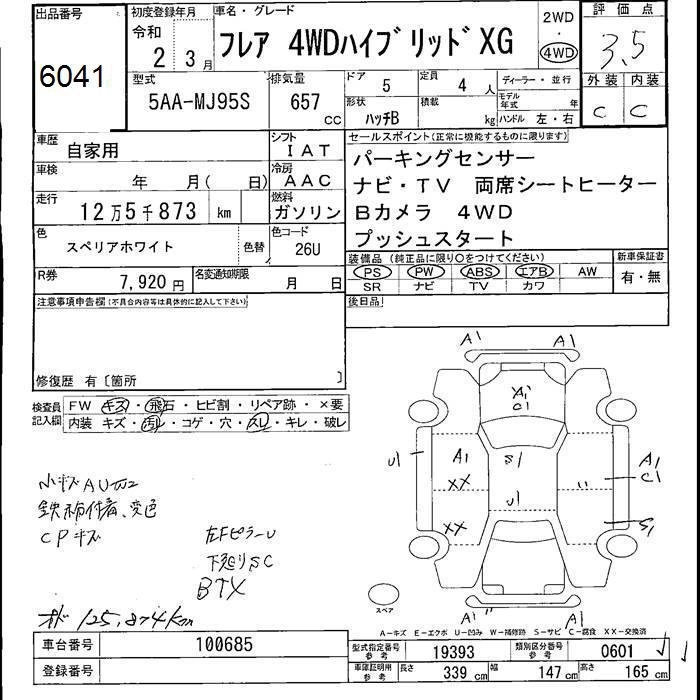 出品番号
6041
初度登録年月
令和
2 3月
車名・グレード
フレア 4WDハイブリッドXG
2WD
・
4WD
評価点
3.5
外装 内装
C C
型式
5AA-MJ95S
排気量
657 cc
ドア
5
定員
4 人
形状
ハッチB
積載
kg
ディーラー・並行
モデル年式 年
ハンドル 左・右
車歴
自家用
シフト
IAT
車検
年 月( 日)
冷房
AAC
走行
12万5千873 km
燃料
ガソリン
色
スペリアホワイト
色替
色コード
26U
R券
7,920円
名変通知期限
月 日
セールスポイント(正常に機能するものに限ります)
パーキングセンサー
ナビ・TV 両席シートヒーター
Bカメラ 4WD
プッシュスタート
装備品(純正品に限り○をつけてください)
PS PW ABS エアB AW
SR ナビ TV カワ
新車保証書
有・無
後日品
注意事項申告欄(不具合内容等は具体的に記入して下さい)
修復歴 有〔箇所 〕
検査員記入欄
FW キズ・飛石・ヒビ割・リペア跡・×要
内装 キズ・汚レ・コゲ・穴・スレ・キレ・破レ
小キズAU凹2
鉄粉付着、変色
CPキズ
左Fピラーu
下廻りSC
BTX
オド 125,874km
A1 A1
A1
C1
A1
XX
S1
U1
XX
U1
A1
C1
S1
A1 A1
スペア
A-キズ E-エクボ U-凹み W-補修跡 S-サビ C-腐食 XX-交換済
車台番号 100685
登録番号
型式指定番号参考 19393
類別区分番号参考 0601
車庫証明用参考 長さ 339cm 幅 147cm 高さ 165cm